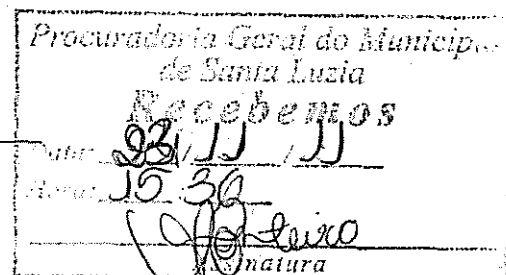 Procuradoria Geral do Municip
de Santa Luzia
Recebemos
Data: 23/11/11
Hora: 15 36
Monteiro
Assinatura